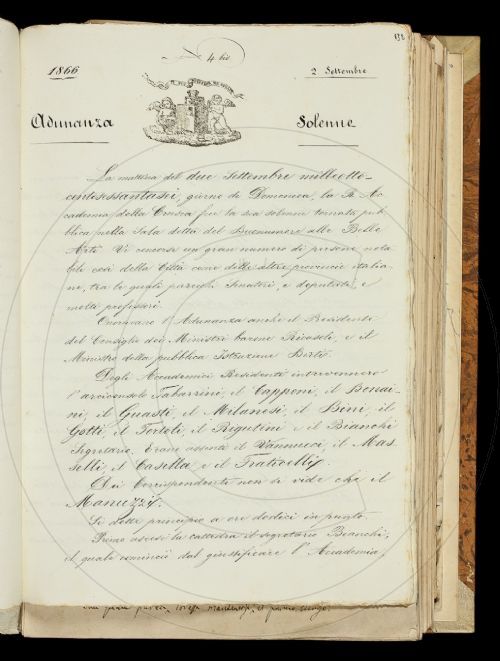 132
N. 4 bis
1866
2 Settembre
Adunanza
Solenne
La mattina del due Settembre milleotto-
centosessantasei, giorno di Domenica, la R. Ac-
cademia della Crusca fece la sua solenne tornata pub-
blica nella Sala detta del Buonumore alle Belle
Arti. Vi concorse un gran numero di persone nota-
bili così della Città come delle altre provincie italia-
ne, tra le quali parecchi Senatori, e deputati, e
molti professori.
Onoravano l'Adunanza anche il Presidente
del Consiglio dei Ministri barone Ricasoli, e il
Ministro della pubblica Istruzione Berti.
Degli Accademici Residenti intervennero
l'arciconsolo Tabarrini, il Capponi, il Bonai-
ni, il Guasti, il Milanesi, il Bini, il
Gotti, il Tortoli, il Rigutini e il Bianchi
Segretario. Erano assenti il Vannucci, il Mas-
selli, il Casella, e il Fraticelli.
Dei Corrispondenti non si vide che il
Manuzzi.
Si dette principio a ore dodici in punto.
Primo ascese la cattedra il segretario Bianchi,
il quale cominciò dal giustificare l'Accademia,